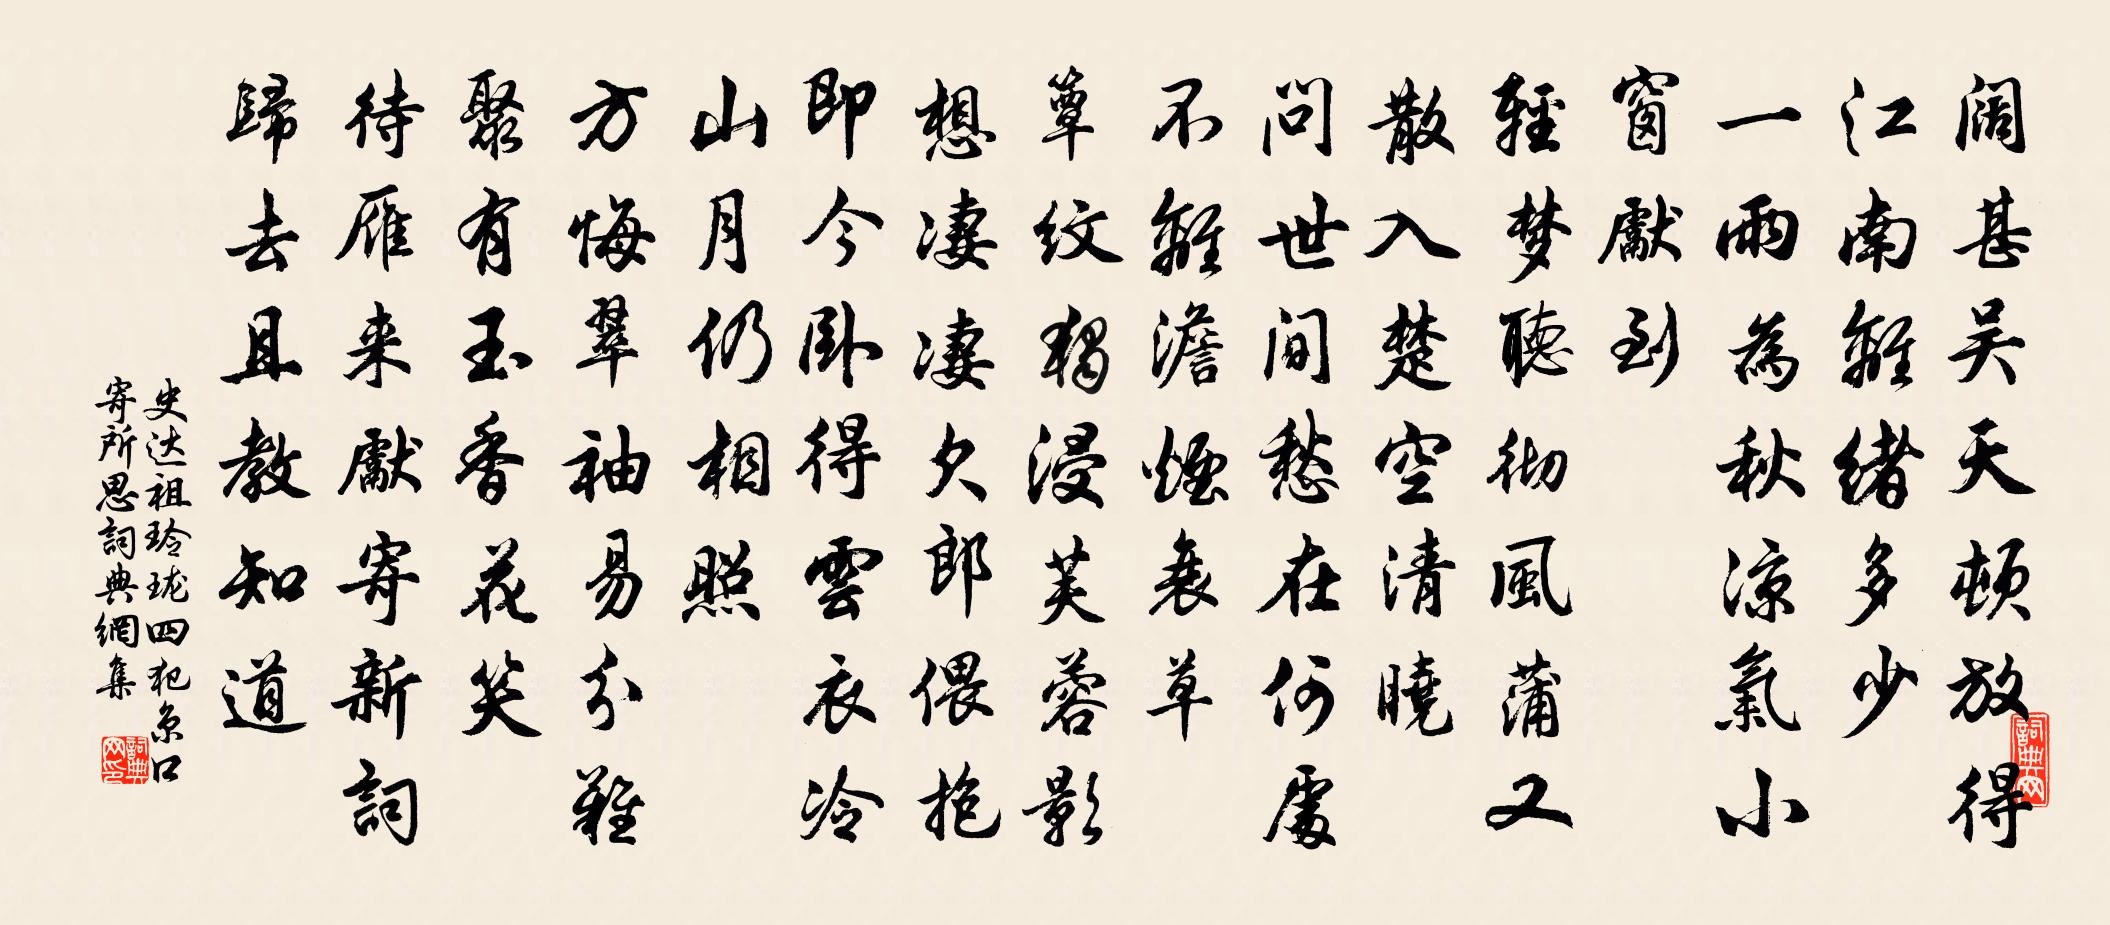 闊甚吴天頓放得
江南離緒多少
一雨為秋凉氣小
窗獻到
輕梦聽彻風蒲又
散入楚空清曉
問世間愁在何處
不離澹煙衰草
簟紋獨浸芙蓉影
想凄凄欠郎偎抱
即今卧得雲衣冷
山月仍相照
方悔翠袖易分難
聚有玉香花笑
待雁来獻寄新詞
歸去且教知道
史达祖玲珑四犯京口
寄所思詞典網集
詞典网
詞典网印